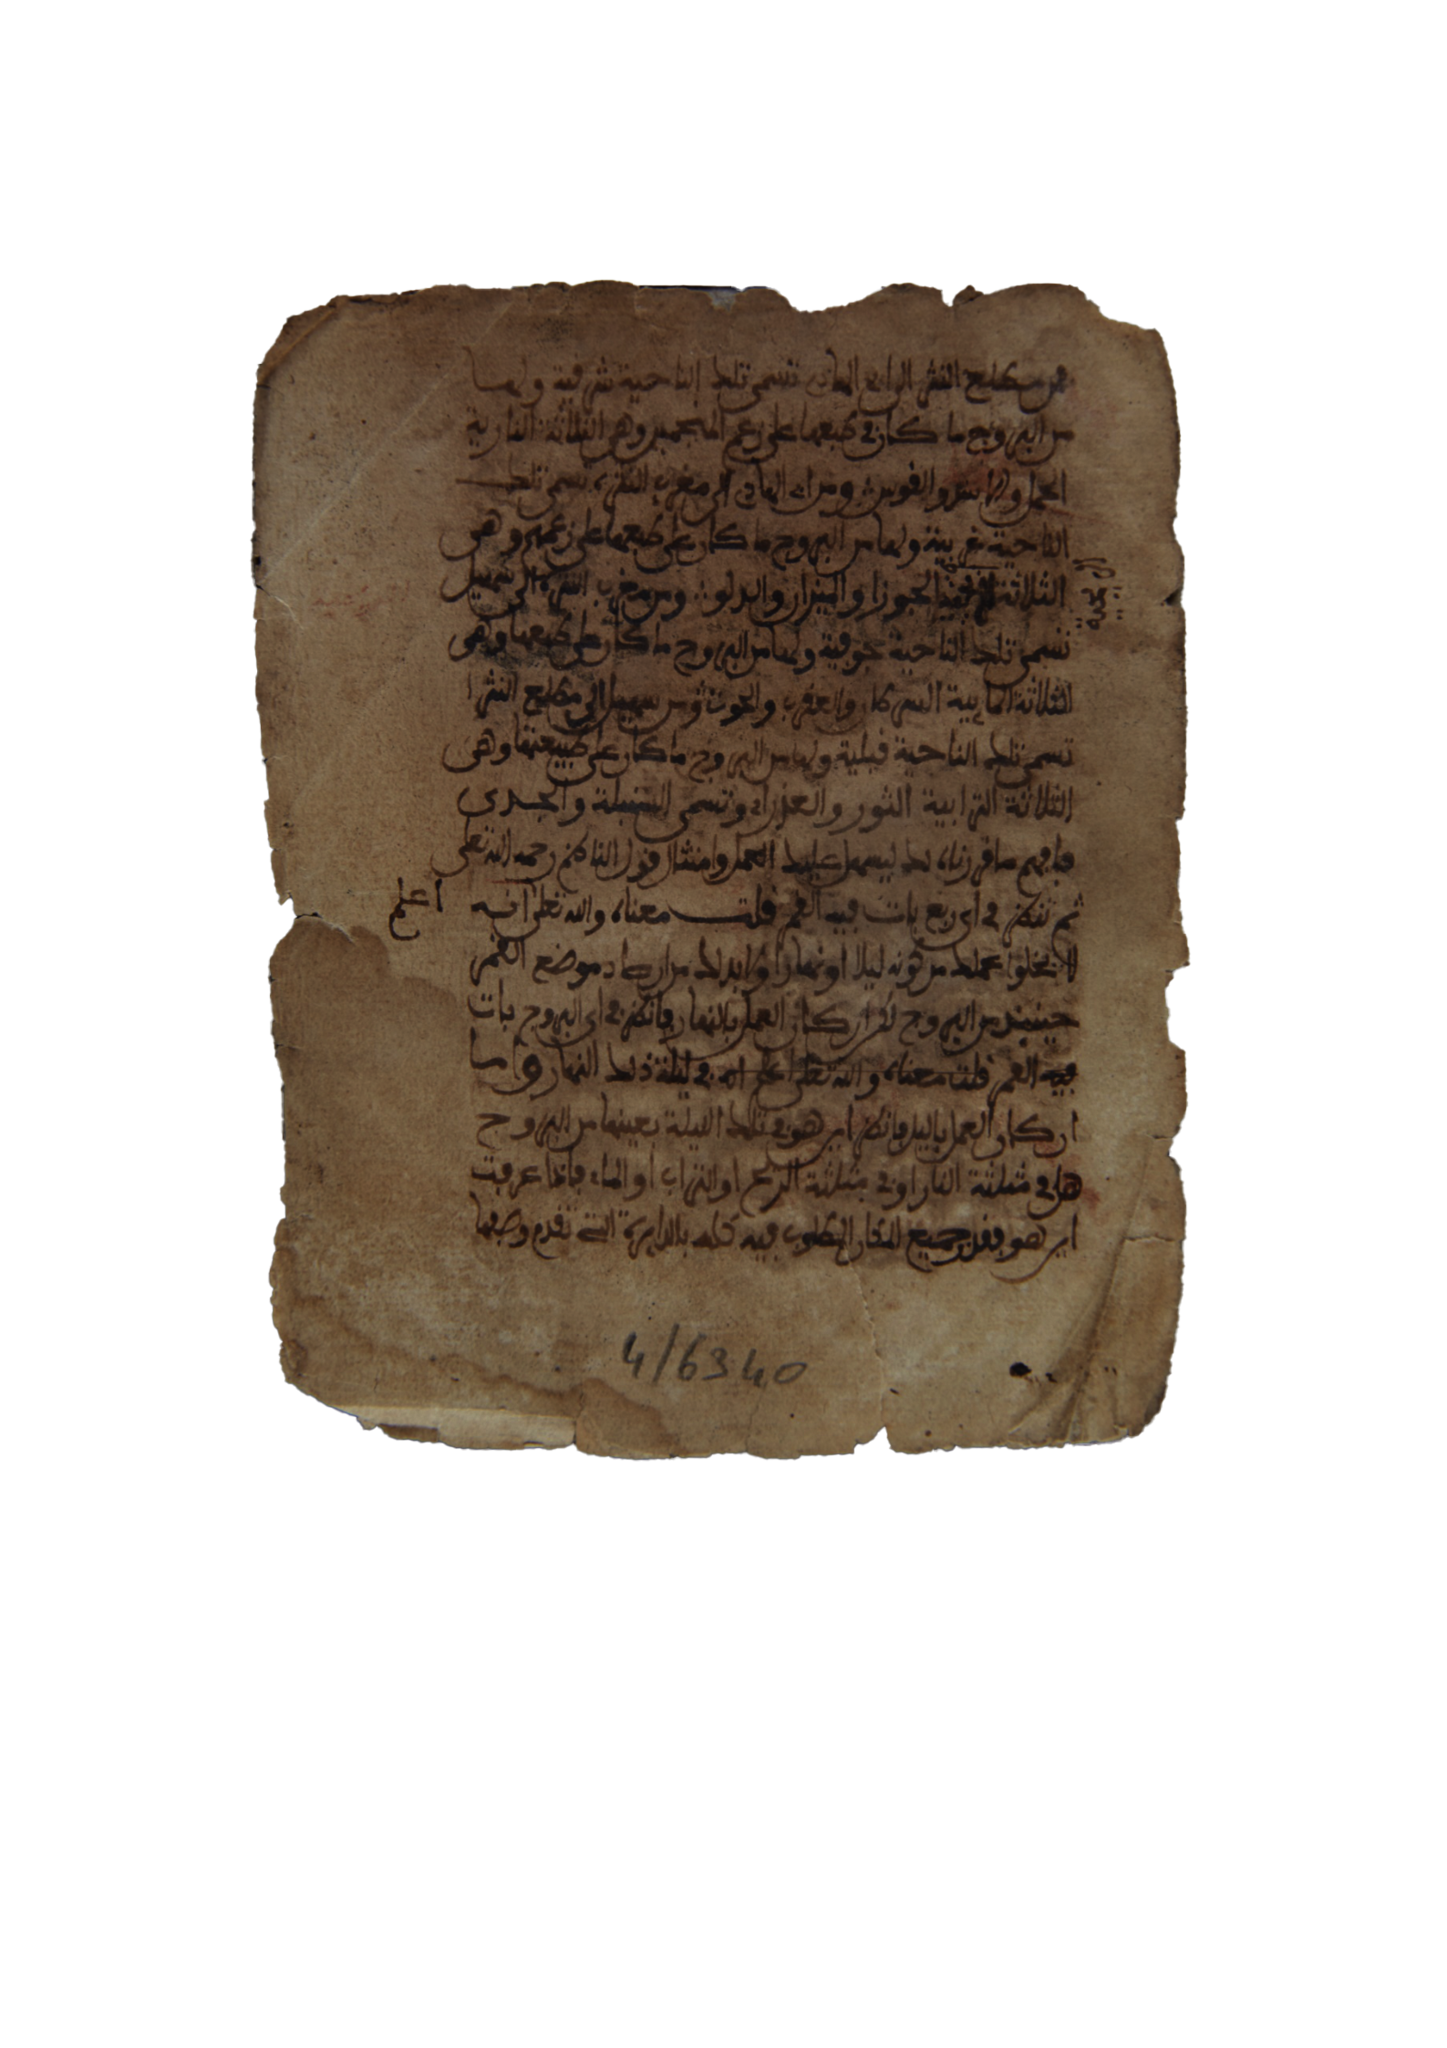 فمن مطلع النثرة الى الهادي تسمى تلك الناحية شرقية ولها
من البروج ما كان في طبعها على زعم المنجمين وهي الثلاثة النارية
الحمل والاسد والقوس ومن الهادي الى مغرب النثرة تسمى تلك
الناحية غربية ولها من البروج ما كان على طبعها على زعمهم وهي
الثلاثة الجوزا والميزان والدلو ومن مغرب النثرة الى سهيل
الريحية
تسمى تلك الناحية جوفية ولها من البروج ما كان على طبعها وهي
الثلاثة المايية السرطان والعقرب والحوت ومن سهيل الى مطلع النثرا
تسمى تلك الناحية قبلية ولها من البروج ما كان على طبيعتها وهي
الثلاثة الترابية الثور والعذراء وتسمى السنبلة والجدي
فافهم ما قررناه لك ليسهل عليك العمل وامتثال قول الناظم رحمه الله تعلى
ثم تنظر في اي ربع بات فيه القمر قلت معناه والله تعلى انه
اعلم
لا يخلوا عملك من كونه ليلا او نهارا ولابد لك من ادراك موضع القمر
حينيذ من البروج لكن ان كان العمل بالنهار فانظر في اي البروج بات
فيه القمر قلت معناه والله تعلى اعلم انه في ليلة ذلك النهار واما
ان كان العمل بالليل فانظر اين هو في تلك الليلة بعينها من البروج
هل في مثلثة النار او في مثلثة الريح او التراب او الماء فاذا عرفت
اين هو جميع المكان المطلوب فيه كله بالدايرة التي تقدم وصفها
4/6340